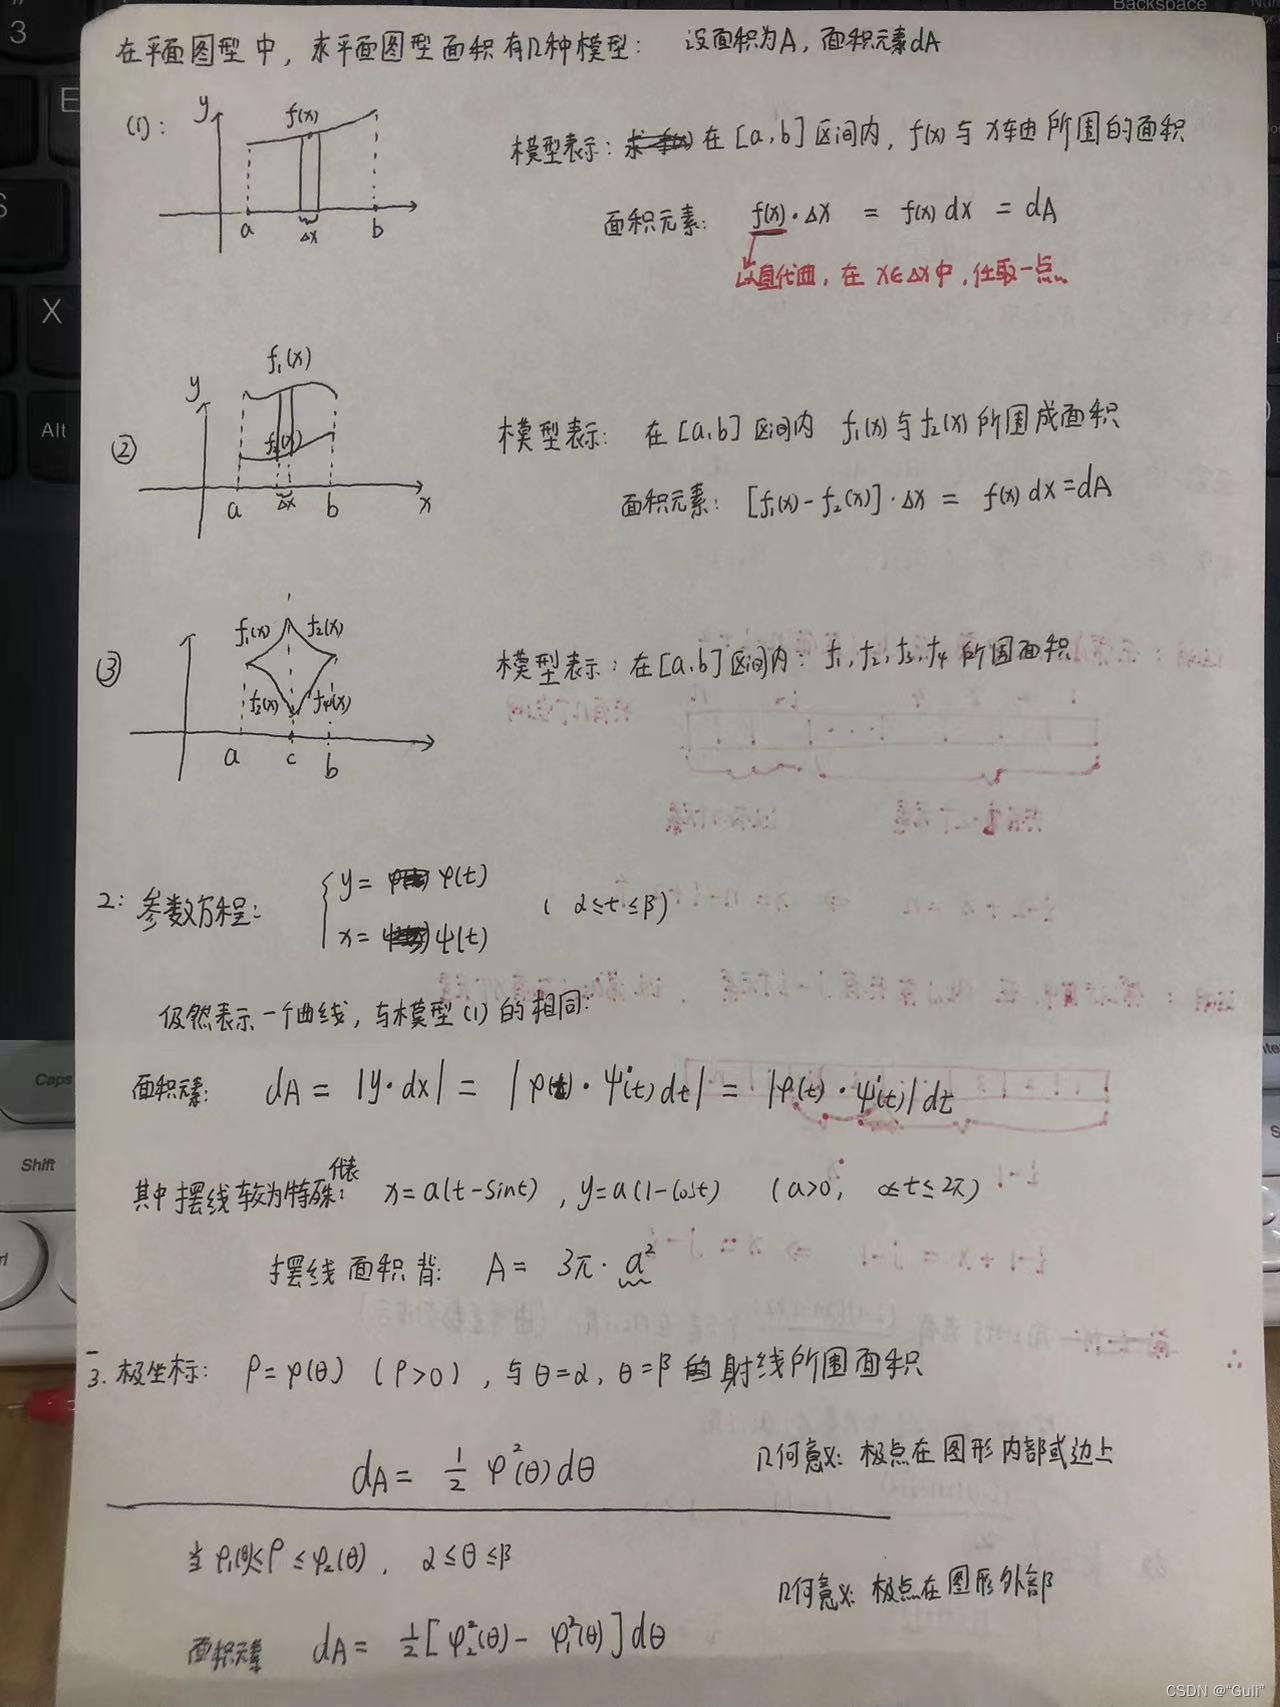 在平面图型中，求平面图型面积有几种模型： 设面积为A，面积元素dA
(1)： y f(x) a Δx b
模型表示：在[a,b]区间内，f(x)与x轴所围的面积
面积元素： f(x)·Δx = f(x)dx = dA
以直代曲，在x∈Δx中，任取一点
② y f₁(x) f₂(x) a Δx b x
模型表示： 在[a,b]区间内 f₁(x)与f₂(x)所围成面积
面积元素： [f₁(x)-f₂(x)]·Δx = f(x)dx=dA
③ f₁(x) f₂(x) f₃(x) f₄(x) a c b
模型表示：在[a,b]区间内：f₁,f₂,f₃,f₄所围面积
2：参数方程： { y=φ(t)
x=ψ(t) (α≤t≤β)
仍然表示一个曲线，与模型(1)的相同：
面积元素： dA = |y·dx| = |φ(t)·ψ'(t)dt| = |φ(t)·ψ'(t)|dt
其中摆线较为特殊： 代表 x=a(t-sint)，y=a(1-cost) (a>0， 0≤t≤2π)
摆线面积背： A= 3π·a²
3.极坐标： ρ=φ(θ) (ρ>0)，与θ=α，θ=β的射线所围面积
dA= ½ φ²(θ)dθ
几何意义：极点在图形内部或边上
当φ₁(θ)≤ρ≤φ₂(θ)， α≤θ≤β
几何意义：极点在图形外部
面积元素 dA= ½[φ₂²(θ)-φ₁²(θ)]dθ
Backspace
3
E
S
X
Alt
Caps
Shift
CSDN @“Guli”